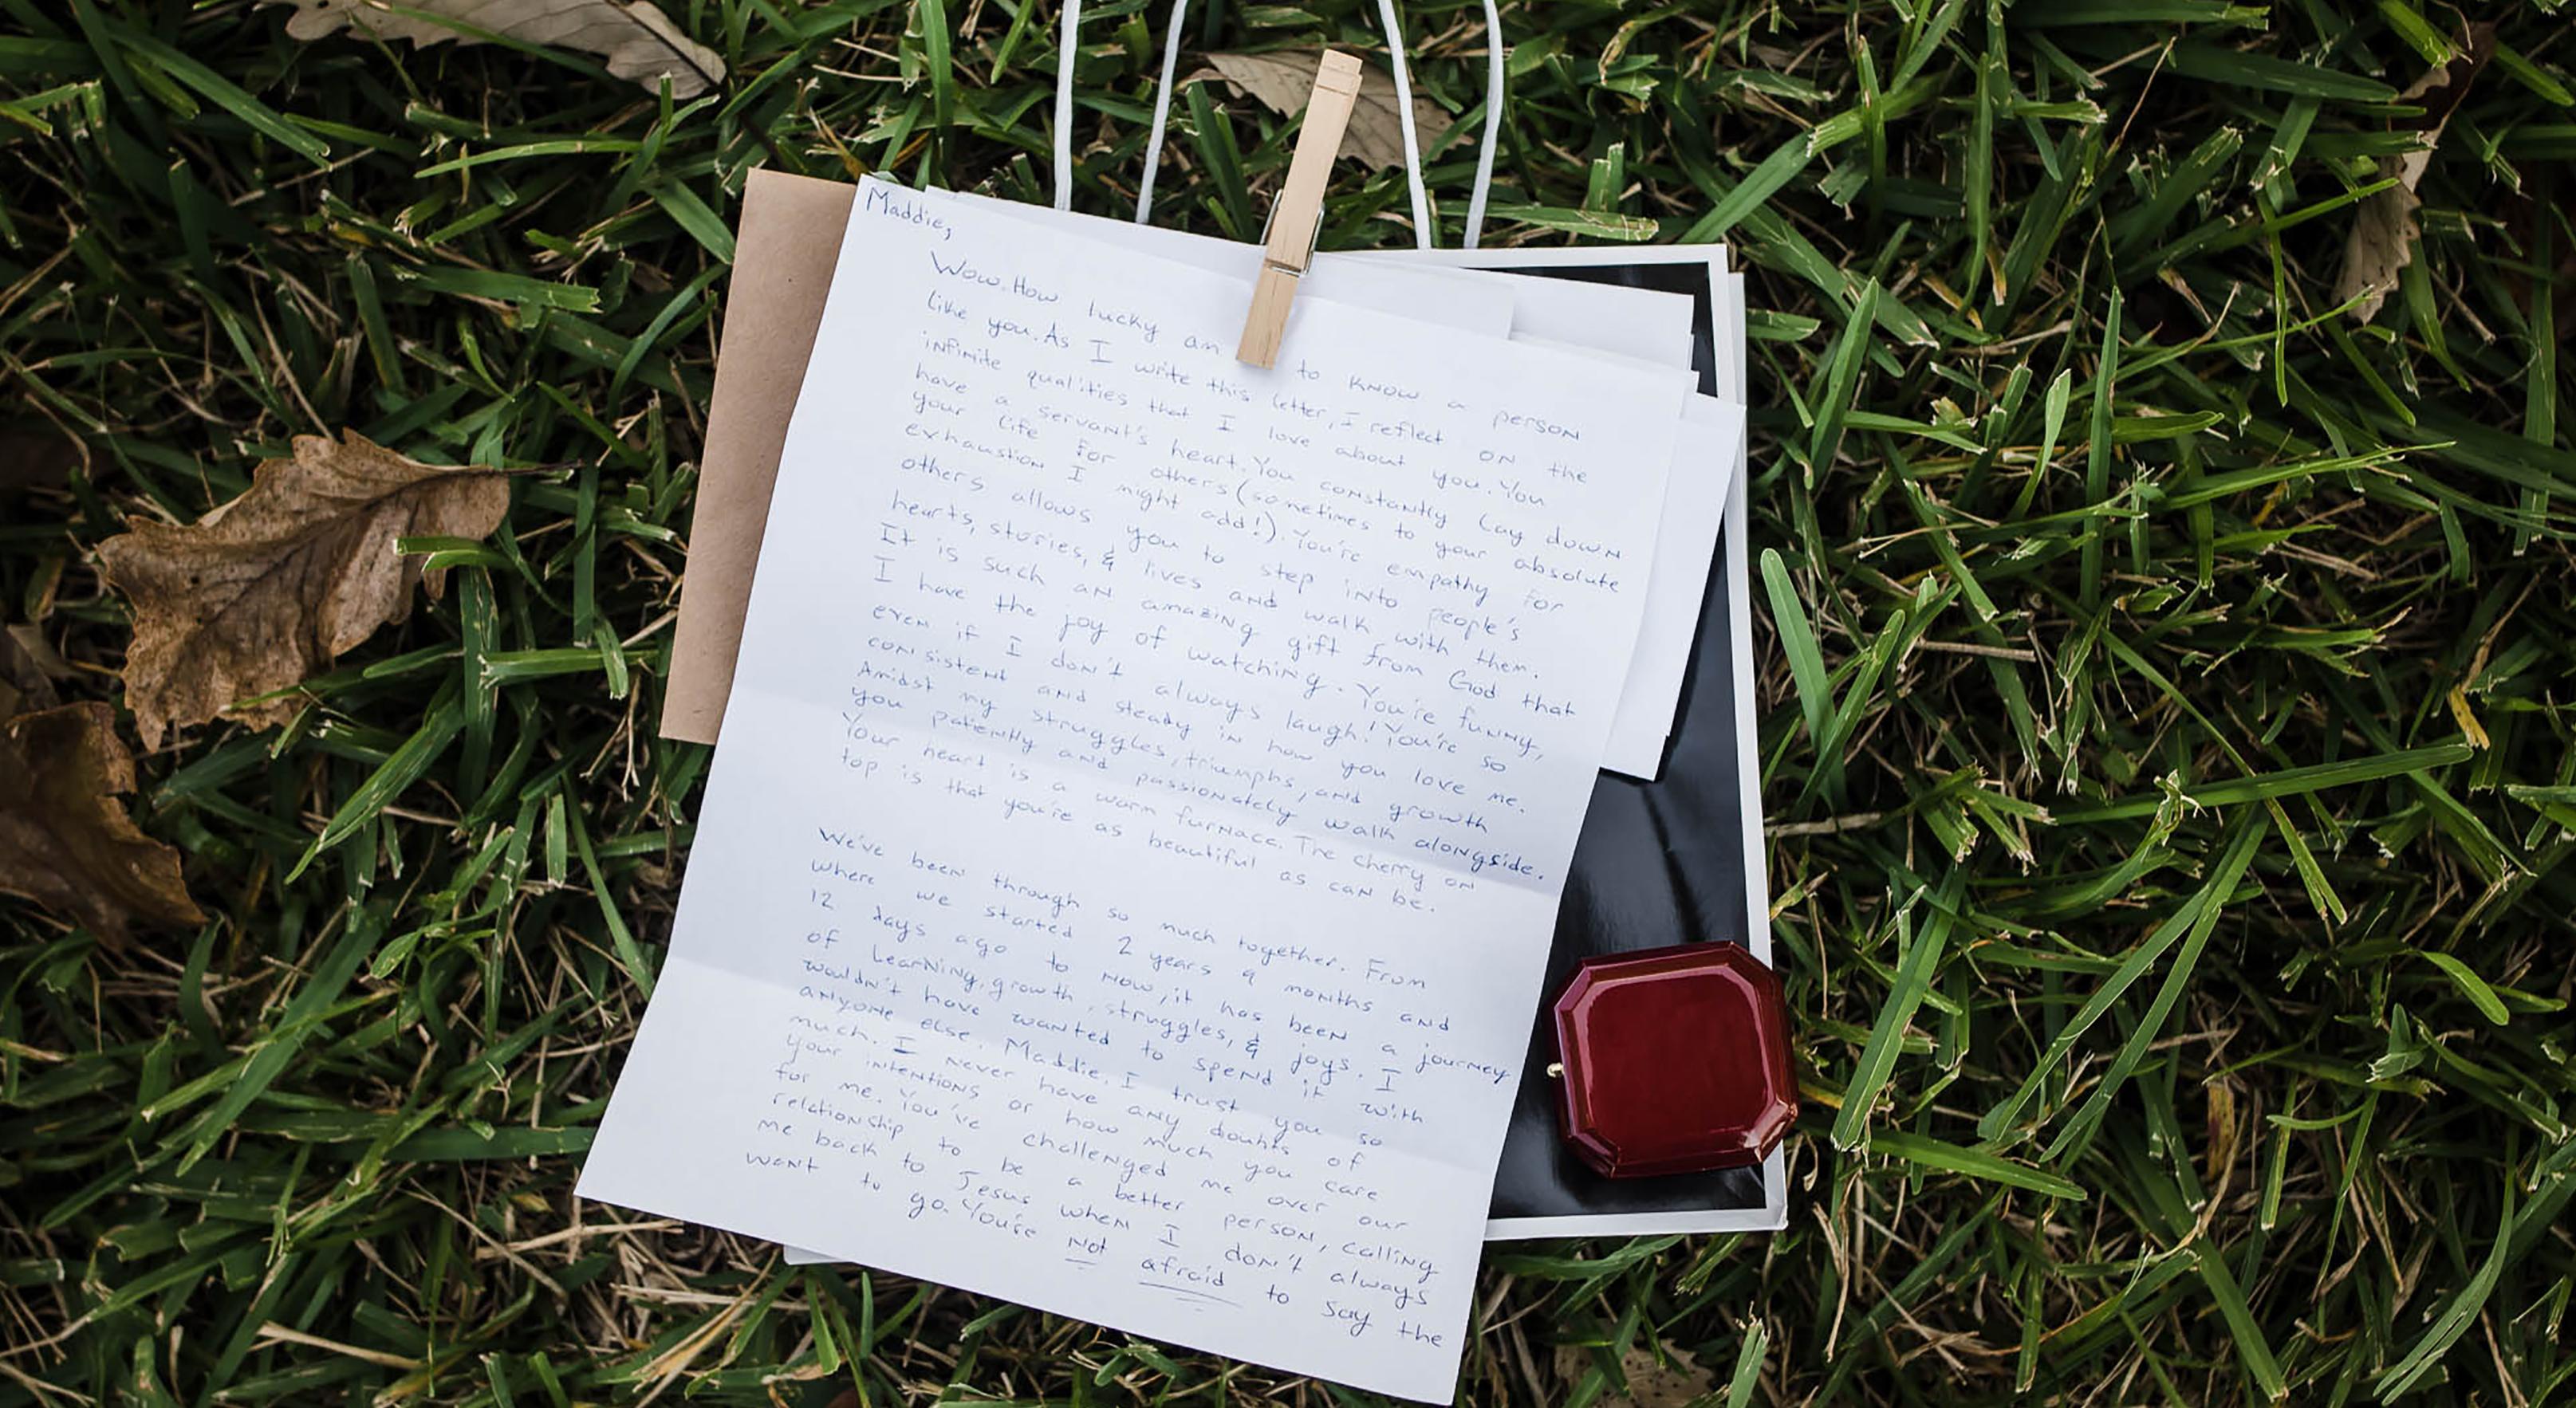 Maddie,
Wow. How lucky am to know a person
like you. As I write this letter, I reflect on the
infinite qualities that I love about you. You
have a servant's heart. You constantly lay down
your life for others (sometimes to your absolute
exhaustion I might add!). You're empathy for
others allows you to step into people's
hearts, stories, & lives and walk with them.
It is such an amazing gift from God that
I have the joy of watching. You're funny,
even if I don't always laugh! You're so
consistent and steady in how you love me.
Amidst my struggles, triumphs, and growth
you patiently and passionately walk alongside.
Your heart is a warm furnace. The cherry on
top is that you're as beautiful as can be.
We've been through so much together. From
where we started 2 years 9 months and
12 days ago to now, it has been a journey
of learning, growth, struggles, & joys. I
wouldn't have wanted to spend it with
anyone else. Maddie, I trust you so
much. I never have any doubts of
your intentions or how much you care
for me. You've challenged me over our
relationship to be a better person, calling
me back to Jesus when I don't always
want to go. You're not afraid to say the